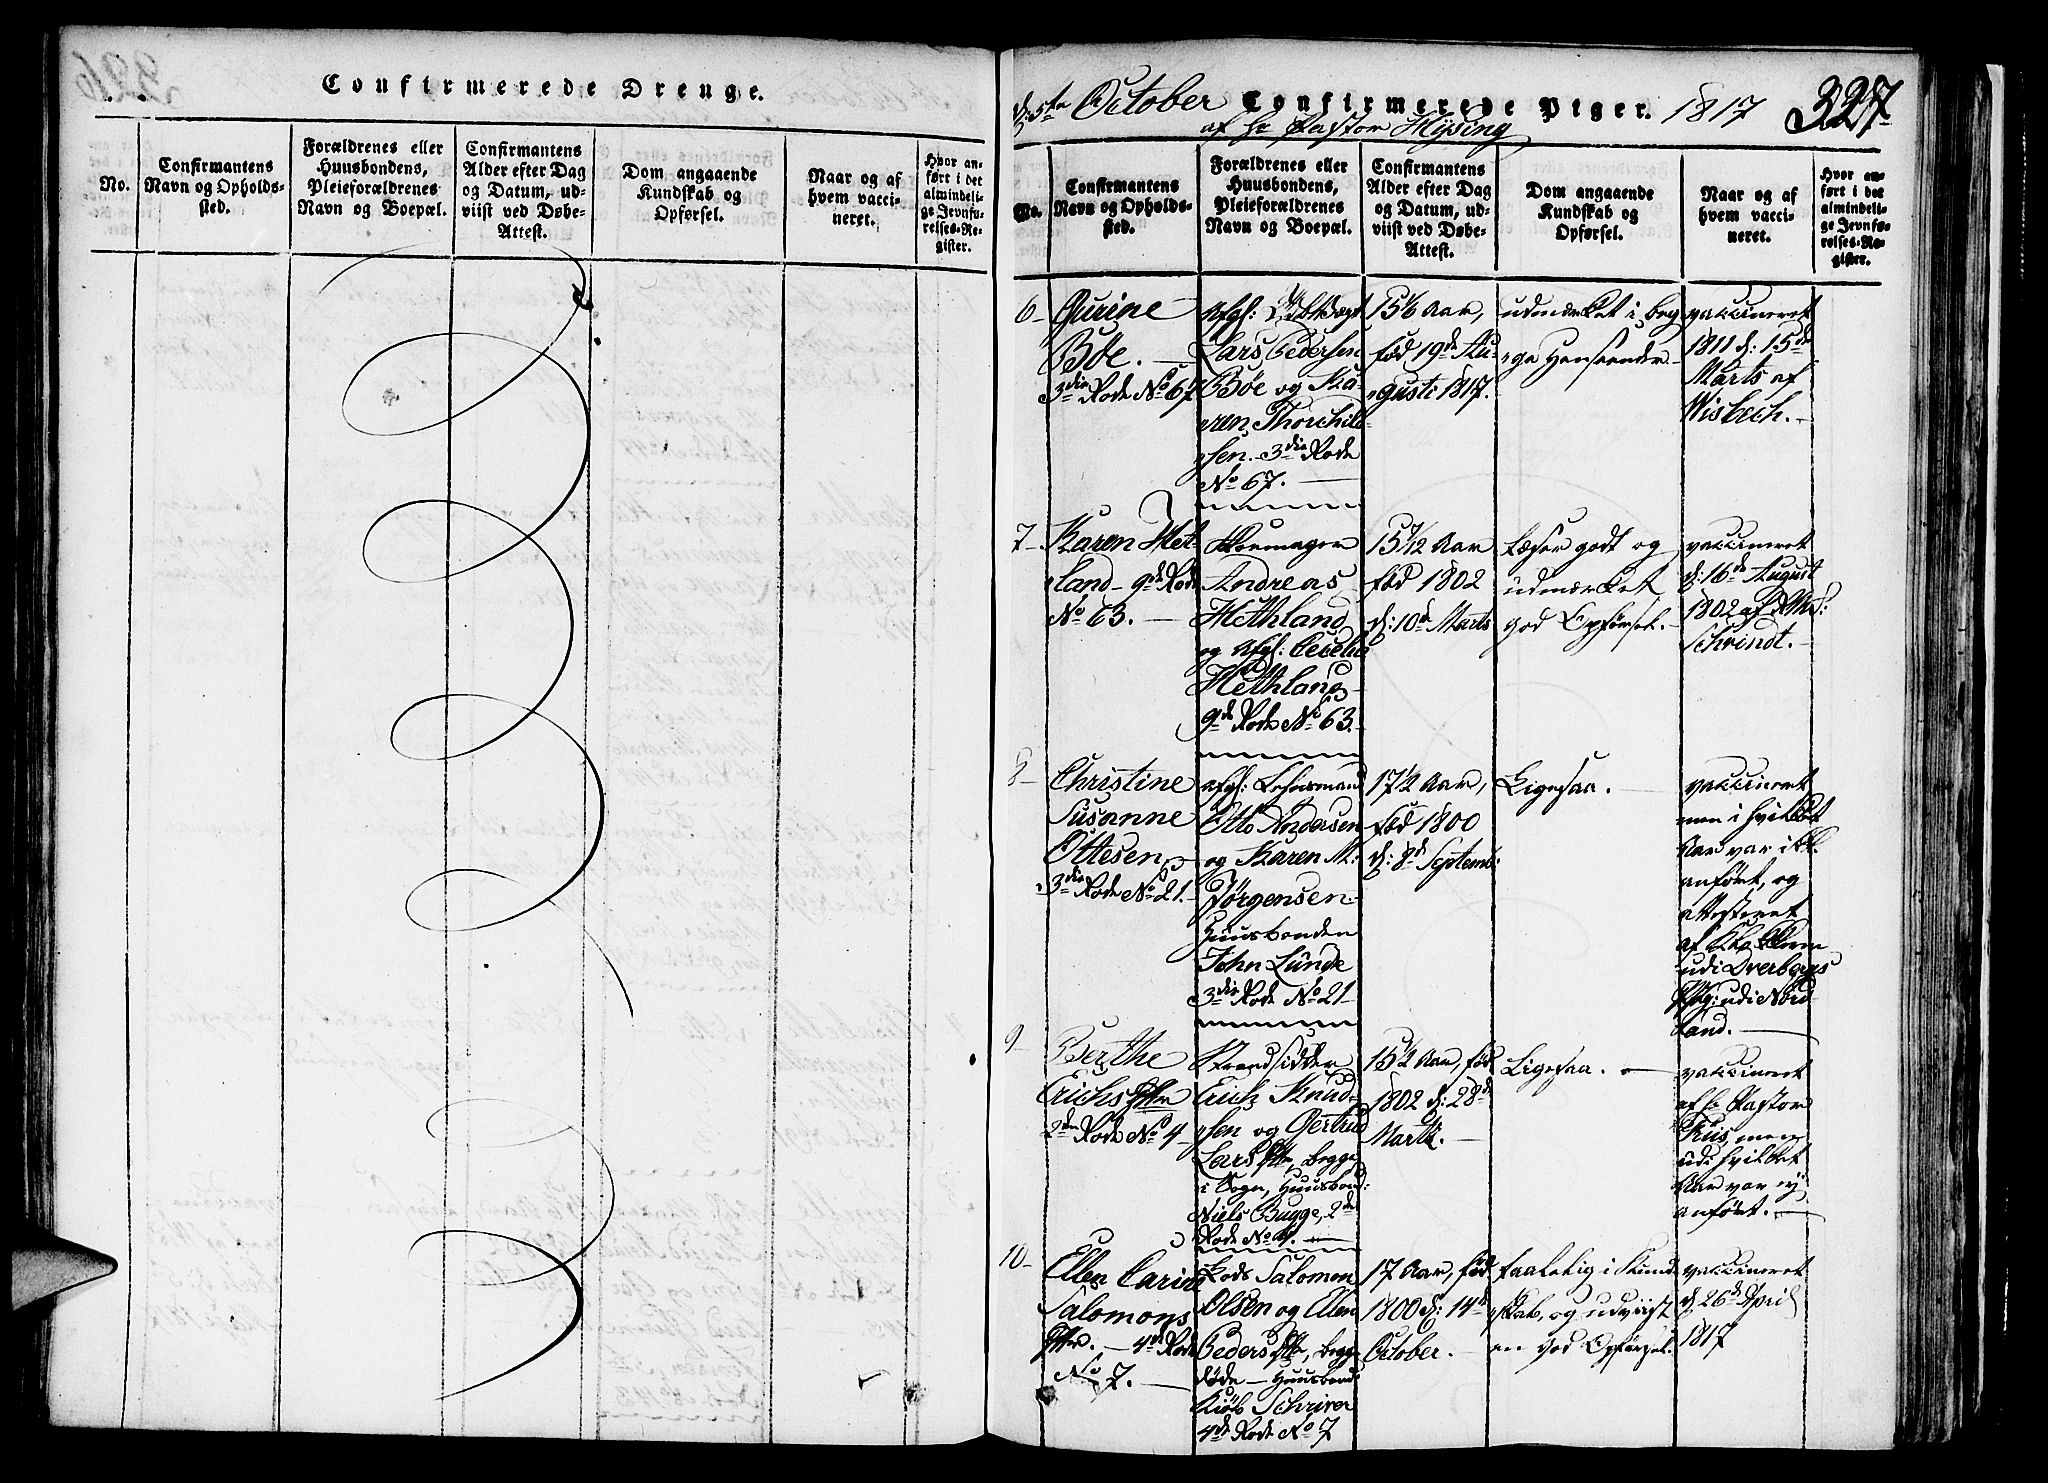 Confirmerede Drenge.
No.
Confirmantens
Navn og Opholds-
sted.
Forældrenes eller
Huusbondens,
Pleieforældrenes
Navn og Boepæl.
Confirmantens
Alder efter Dag
og Datum, ud-
viist ved Døbe-
Attest.
Dom angaaende
Kundskab og
Opførsel.
Naar og af
hvem vacci-
neret.
Hvor an-
ført i det
almindeli-
ge Jevnfø-
relses-Re-
gister.
d: 5te October Confirmerede Piger. 1817 327
af Hr Pastor Hysing
No.
Confirmantens
Navn og Opholds-
sted.
Forældrenes eller
Huusbondens,
Pleieforældrenes
Navn og Boepæl.
Confirmantens
Alder efter Dag
og Datum, ud-
viist ved Døbe-
Attest.
Dom angaaende
Kundskab og
Opførsel.
Naar og af
hvem vacci-
neret.
Hvor an-
ført i det
almindeli-
ge Jevnfø-
relses-Re-
gister.
6
Gurine
Bøe.
3die Rode No 67
afgl:
Lars Pedersen
Bøe og Ka-
ren Thorchild-
sen. 3die Rode
No 67.
15 1/6 Aar,
fød 19de Au-
gusti 1817.
udmærket i beg
ge Henseender
vaccineret
1811 d: 15de
Marts af
Wisbech.
7
Karen Het
land 9de Rode
No 63.
Skoemager
Andreas
Hethland
og afgl: Cecelia
Hethland
9de Rode No 63.
15 7/12 Aar
fød 1802
d: 10de Marts
Læser godt og
udmærket
god Opførsel.
vaccineret
d: 16de August
1802 af
Schvindt.
8
Christine
Susanne
Ottesen,
3die Rode No 21.
afgl: Lehnsmand
Otto Andersen
og Karen M:
Jörgensen
Huusbonden
John Lunde
3die Rode No 21
17 1/2 Aar,
fød 1800
d: 8de Septemb:
Ligesaa.
vaccineret
men i hvilket
Aar var ikke
anført, og
attesteret
af Klokkeren
udi Overbergs
udi Nord
land.
9
Berthe
Erichs
2den Rode No 4
Strandsidder
Erich Knud-
sen og Gertrud
Lars begge
i Sogn, Huusbond:
Niels Bugge, 2de
Rode No 4.
15 1/2 Aar, fød
1802 d: 28de
Martz.
Ligesaa.
vaccineret
af Hr Pastor
Friis, men
udi hvilket
Aar var ej
anført.
10
Ellen Carine
Salomons
4de Rode
No 7.
Salomon
Olsen og Ellen
Peders begge
døde Huusbond
Schriver
4de Rode No 7
17 Aar, fød
1800 d: 14de
October.
taalelig i Kund
skab, og udviist
en god Opførsel.
vaccineret
d 26de April
1817